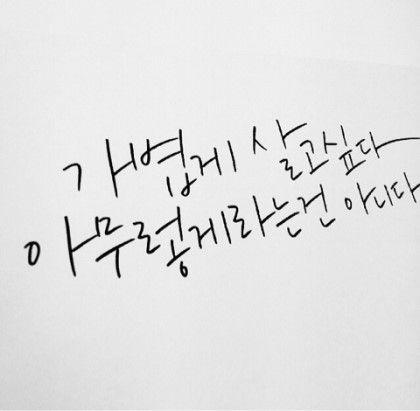 가볍게 살고싶다
아무렇게라는건 아니다